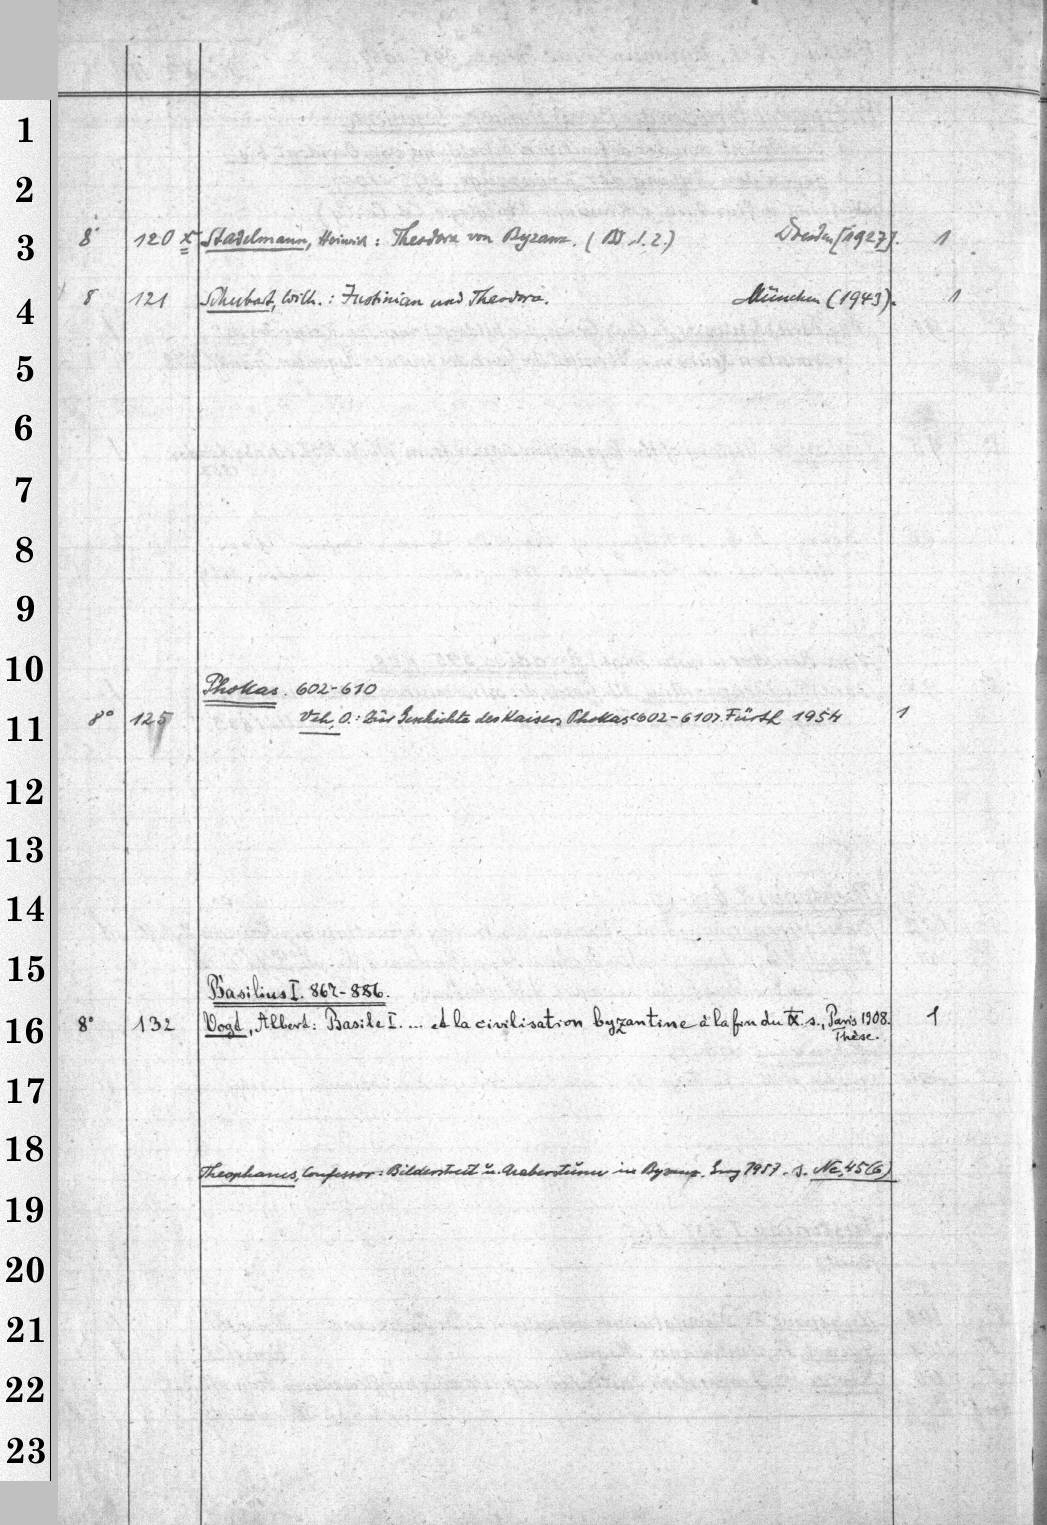 1
2
3
8° 120 x Stadelmann, Heinrich: Theodora von Byzanz. (Bd. 1. 2.) Dresden [1927]. 1
4
8 121 Schubart, Wilh.: Justinian und Theodora. München (1943). 1
5
6
7
8
9
10
Phokas. 602-610
11
8° 125 Veh, O.: Zur Geschichte des Kaisers Phokas (602-610). Fürth 1954 1
12
13
14
15
Basilius I. 867-886.
16
8° 132 Vogt, Albert: Basile I. ... et la civilisation byzantine à la fin du IX. s., Paris 1908. 1
Thèse.
17
18
Theophanes, Confessor: Bilderstreit u. Araberstürme in Byzanz. 1957. s. Nc 45(6)
19
20
21
22
23